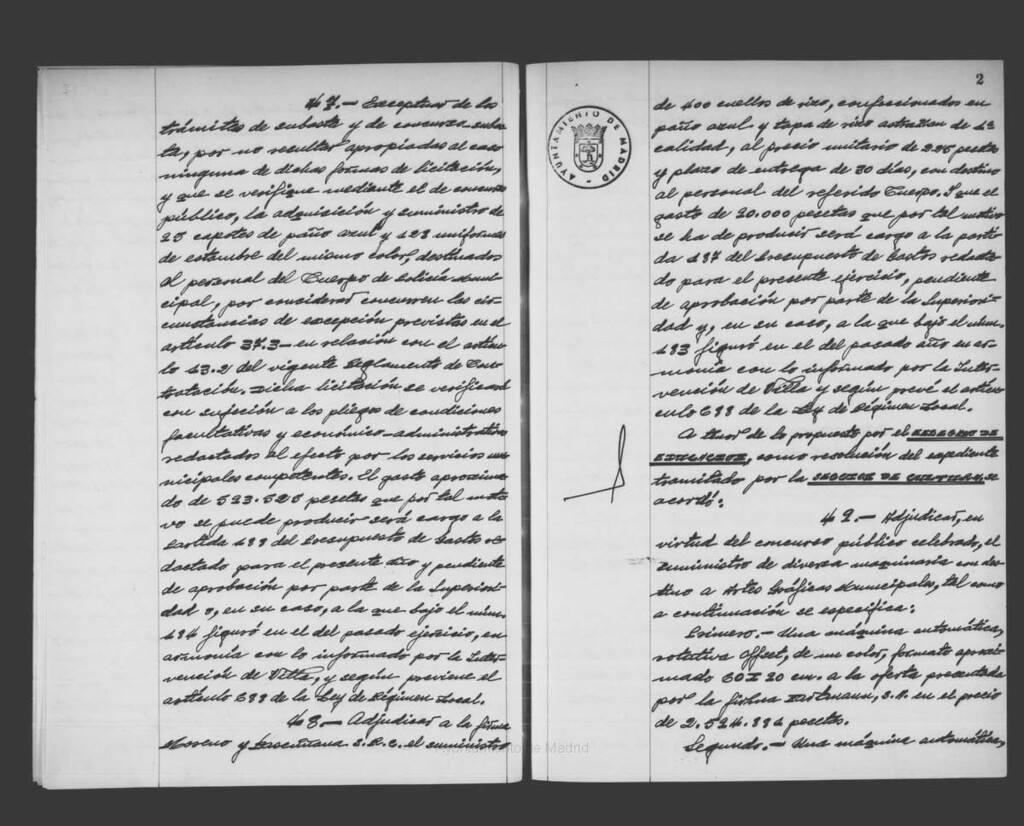 47.- Exceptuar de los
trámites de subasta y de concurso-subas-
ta, por no resultar apropiadas al caso
ninguna de dichas formas de licitación,
y que se verifique mediante el de concurso
público, la adquisición y suministro de
25 capotes de paño azul y 123 uniformes
de estambre del mismo color, destinados
al personal del Cuerpo de Policía Muni-
cipal, por considerar concurren las cir-
cunstancias de excepción previstas en el
artículo 37.3- en relación con el artícu-
lo 13.2 del vigente Reglamento de Con-
tratación. Dicha licitación se verificará
con sujeción a los pliegos de condiciones
facultativas y económico-administrativas
redactados al efecto por los servicios mu-
nicipales competentes. El gasto aproxima-
do de 523.525 pesetas que por tal moti-
vo se puede producir será cargo a la
Partida del Presupuesto de Gastos re-
dactado para el presente año y pendiente
de aprobación por parte de la Superiori-
dad o, en su caso, a la que bajo el núm.
184 figuró en el del pasado ejercicio, en
armonía con lo informado por la Inter-
vención de Villa, y según previene el
artículo 688 de la Ley de Régimen Local.
48.- Adjudicar a la firma
Moreno y S.R.C. el suministro
2
AYUNTAMIENTO DE MADRID
de 400 cuellos de rizo, confeccionados en
paño azul y tapa de rizo astrakan de 1ª
calidad, al precio unitario de pesetas
y plazo de entrega de 30 días, con destino
al personal del referido Cuerpo. Y que el
gasto de 20.000 pesetas que por tal motivo
se ha de producir será cargo a la parti-
da 187 del Presupuesto de Gastos redacta-
do para el presente ejercicio, pendiente
de aprobación por parte de la Superiori-
dad y, en su caso, a la que bajo el núm.
183 figuró en el del pasado año en ar-
monía con lo informado por la Inter-
vención de Villa y según prevé el artí-
culo 688 de la Ley de Régimen Local.
A tenor de lo propuesto por el DELEGADO DE
EDUCACION, como resolución del expediente
tramitado por la SECCION DE CULTURA, se
acordó:
49.- Adjudicar, en
virtud del concurso público celebrado, el
suministro de diversa maquinaria con des-
tino a Artes Gráficas Municipales, tal como
a continuación se especifica:
Primero.- Una máquina automática,
rotativa Offset, de un color, formato aproxi-
mado cm. a la oferta presentada
por la firma Hartmann, S.A. en el precio
de 2.524.884 pesetas.
Segundo.- Una máquina automática,
Ayuntamiento de Madrid